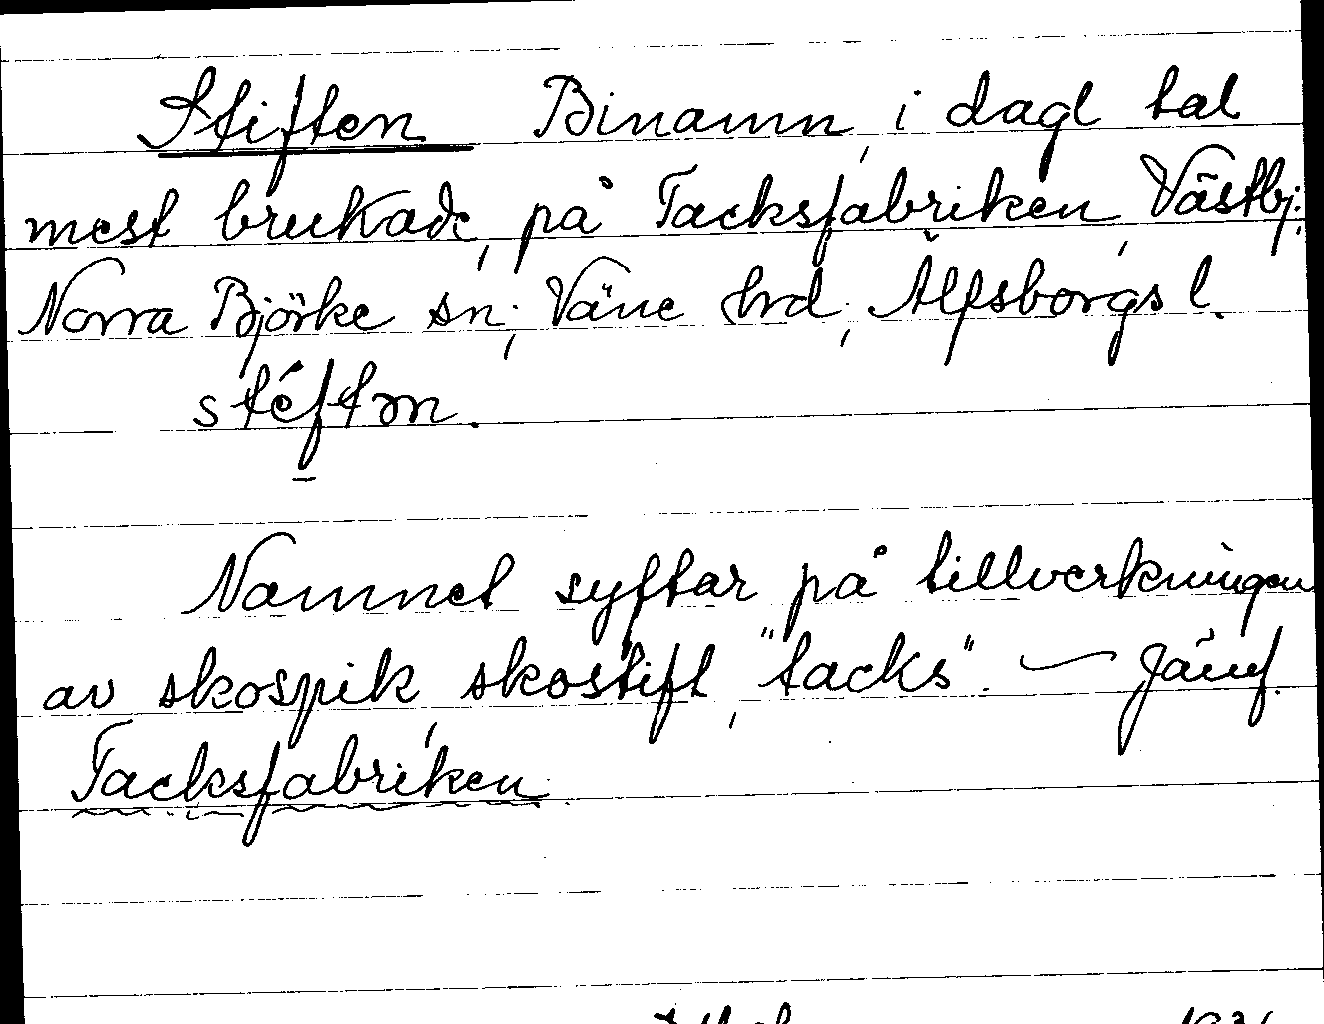 Stiften Binamn, i dagl tal
mest brukade, på Tacksfabriken, Västbj:,
Norra Björke sn; Väne hrd; Älfsborgs l.
stéftən.
Namnet syftar på tillverkningen
av skospik, skostift, "tacks". — Jämf.
Tacksfabriken